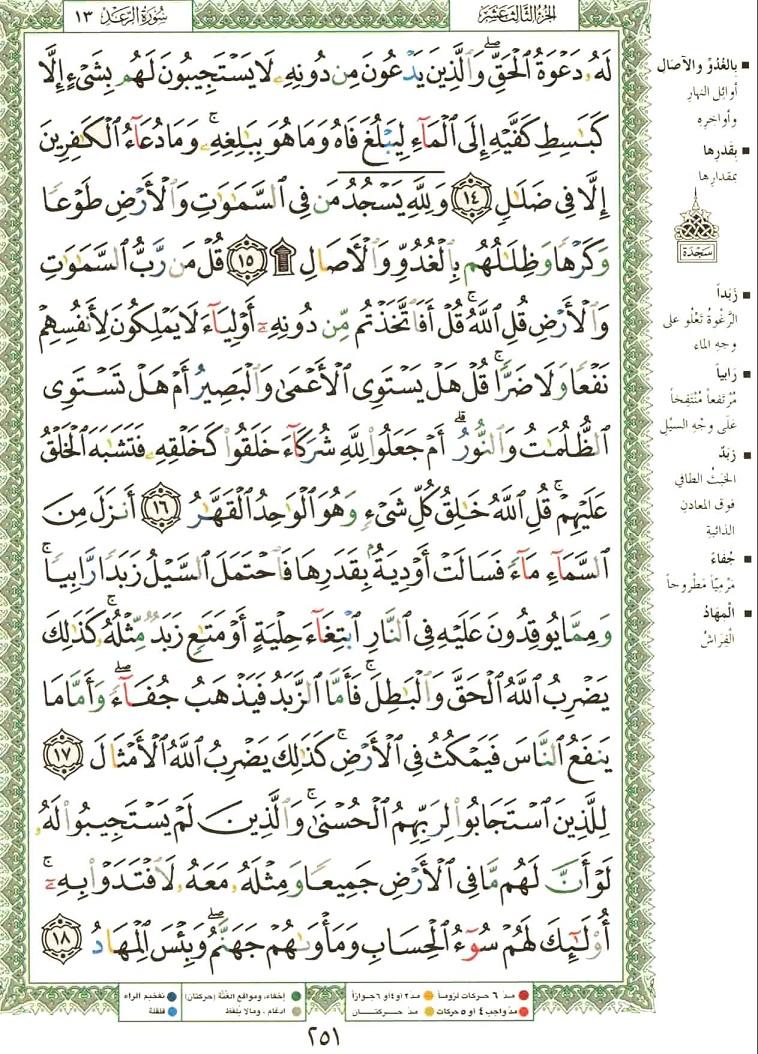 الجزء الثالث عشر
سورة الرعد ١٣
لَهُۥ دَعْوَةُ ٱلْحَقِّ ۖ وَٱلَّذِينَ يَدْعُونَ مِن دُونِهِۦ لَا يَسْتَجِيبُونَ لَهُم بِشَىْءٍ إِلَّا
كَبَٰسِطِ كَفَّيْهِ إِلَى ٱلْمَآءِ لِيَبْلُغَ فَاهُ وَمَا هُوَ بِبَٰلِغِهِۦ ۚ وَمَا دُعَآءُ ٱلْكَٰفِرِينَ
إِلَّا فِى ضَلَٰلٍ ١٤ وَلِلَّهِ يَسْجُدُ مَن فِى ٱلسَّمَٰوَٰتِ وَٱلْأَرْضِ طَوْعًا
وَكَرْهًا وَظِلَٰلُهُم بِٱلْغُدُوِّ وَٱلْـَٔاصَالِ ۩ ١٥ قُلْ مَن رَّبُّ ٱلسَّمَٰوَٰتِ
وَٱلْأَرْضِ قُلِ ٱللَّهُ ۚ قُلْ أَفَٱتَّخَذْتُم مِّن دُونِهِۦٓ أَوْلِيَآءَ لَا يَمْلِكُونَ لِأَنفُسِهِمْ
نَفْعًا وَلَا ضَرًّا ۚ قُلْ هَلْ يَسْتَوِى ٱلْأَعْمَىٰ وَٱلْبَصِيرُ أَمْ هَلْ تَسْتَوِى
ٱلظُّلُمَٰتُ وَٱلنُّورُ ۗ أَمْ جَعَلُوا۟ لِلَّهِ شُرَكَآءَ خَلَقُوا۟ كَخَلْقِهِۦ فَتَشَٰبَهَ ٱلْخَلْقُ
عَلَيْهِمْ ۚ قُلِ ٱللَّهُ خَٰلِقُ كُلِّ شَىْءٍ وَهُوَ ٱلْوَٰحِدُ ٱلْقَهَّٰرُ ١٦ أَنزَلَ مِنَ
ٱلسَّمَآءِ مَآءً فَسَالَتْ أَوْدِيَةٌۢ بِقَدَرِهَا فَٱحْتَمَلَ ٱلسَّيْلُ زَبَدًا رَّابِيًا ۚ
وَمِمَّا يُوقِدُونَ عَلَيْهِ فِى ٱلنَّارِ ٱبْتِغَآءَ حِلْيَةٍ أَوْ مَتَٰعٍ زَبَدٌ مِّثْلُهُۥ ۚ كَذَٰلِكَ
يَضْرِبُ ٱللَّهُ ٱلْحَقَّ وَٱلْبَٰطِلَ ۚ فَأَمَّا ٱلزَّبَدُ فَيَذْهَبُ جُفَآءً ۖ وَأَمَّا مَا
يَنفَعُ ٱلنَّاسَ فَيَمْكُثُ فِى ٱلْأَرْضِ ۚ كَذَٰلِكَ يَضْرِبُ ٱللَّهُ ٱلْأَمْثَالَ ١٧
لِلَّذِينَ ٱسْتَجَابُوا۟ لِرَبِّهِمُ ٱلْحُسْنَىٰ ۚ وَٱلَّذِينَ لَمْ يَسْتَجِيبُوا۟ لَهُۥ
لَوْ أَنَّ لَهُم مَّا فِى ٱلْأَرْضِ جَمِيعًا وَمِثْلَهُۥ مَعَهُۥ لَٱفْتَدَوْا۟ بِهِۦٓ ۚ
أُو۟لَٰٓئِكَ لَهُمْ سُوٓءُ ٱلْحِسَابِ وَمَأْوَىٰهُمْ جَهَنَّمُ ۖ وَبِئْسَ ٱلْمِهَادُ ١٨
■ بالغُدُوِّ والآصَال
أوائلِ النهارِ
وأواخرِه
■ بقَدَرِها
بمقدارِها
سجدة
■ زَبَداً
الرَّغْوةُ تَعْلُو على
وجهِ الماء
■ رَابياً
مُرْتفعاً مُنْتَفِخاً
عَلَى وجْهِ السيْلِ
■ زبَدٌ
الخَبَثُ الطافي
فوق المعادنِ
الذائبة
■ جُفاءً
مَرْمِيّاً مَطْروحاً
■ الْمِهَادُ
الْفِرَاشُ
مد ٦ حركات لزوماً مد ٢ أو ٤ أو ٦ جوازاً إخفاء، ومواقع الغنة (حركتان) تفخيم الراء
مد واجب ٤ أو ٥ حركات مد حركتان ادغام، ومالا يلفظ قلقلة
٢٥١